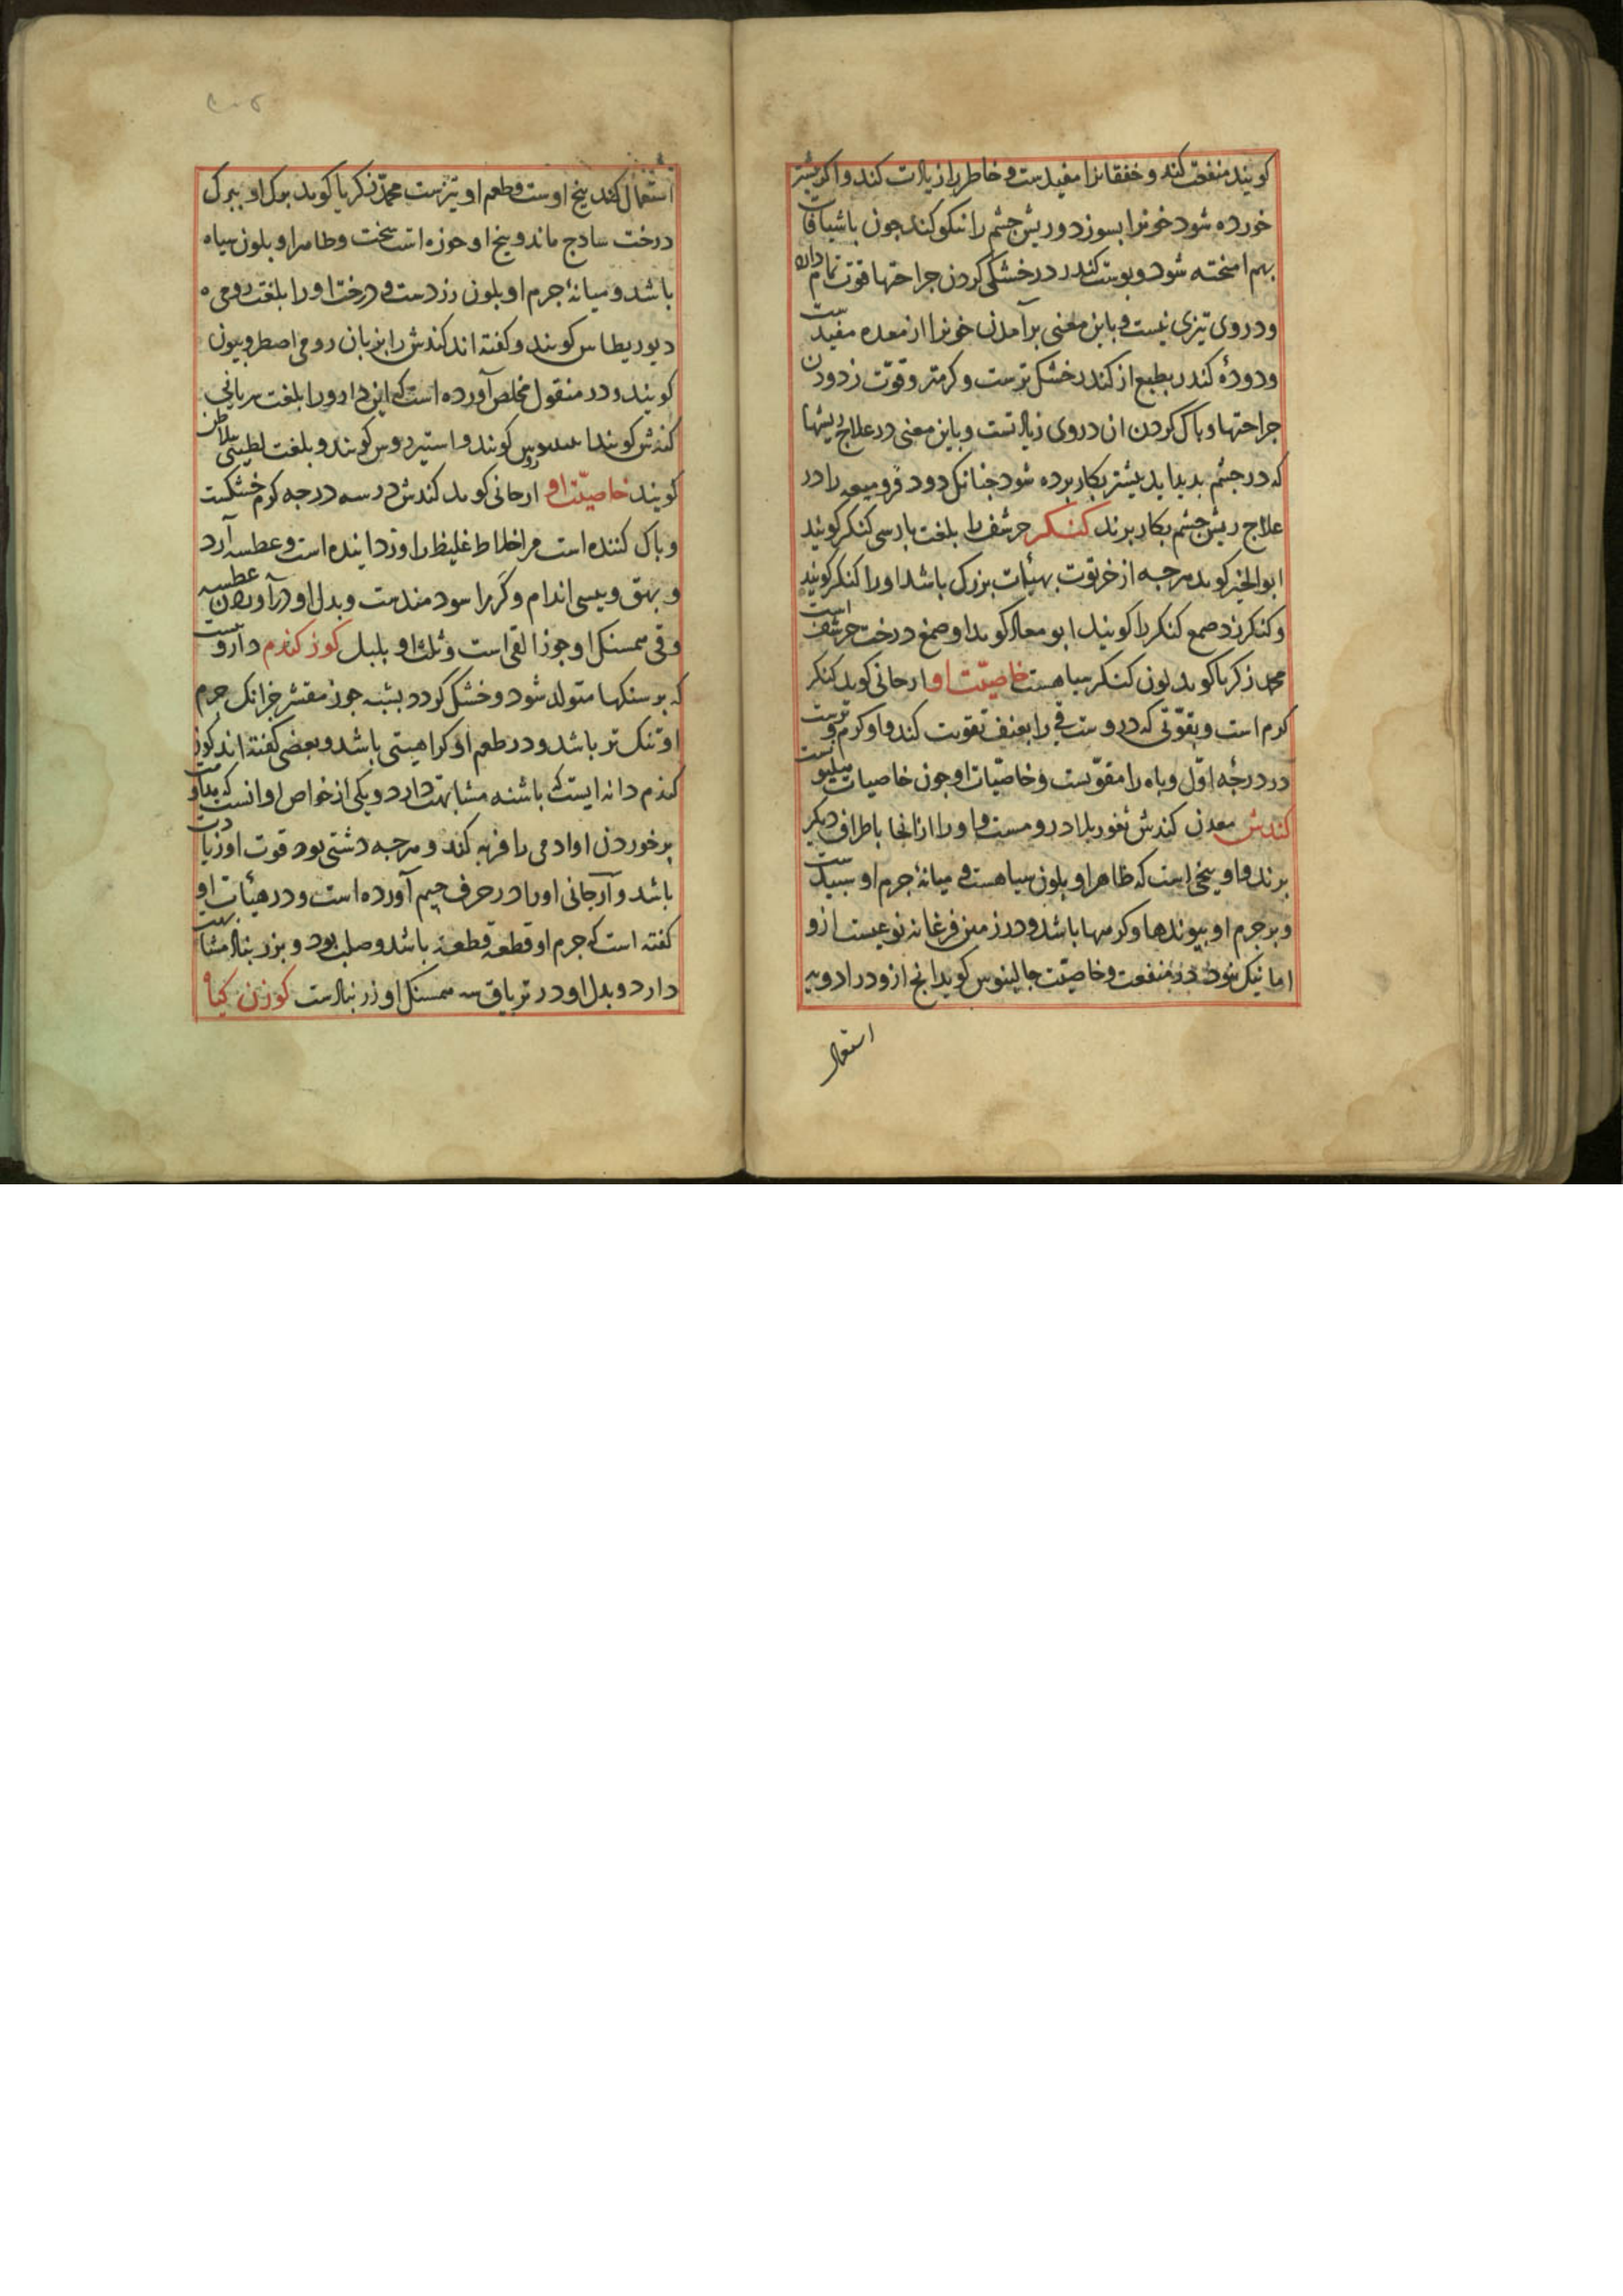 کویند منفعت کند و خفقانرا مفیدست و خاطر را زیادت کند و اکر بیشتر
خورده شود خونرا بسوزد و ریش جشم را نیکو کند جون باشیافات
بهم امیخته شود و بوست کندر در خشک کردن جراحتها قوت تمام دارد
و در وی تیزی نیست و باین معنی بر آمدن خونرا از معده مفیدست
و دودهٔ کندر بطبع از کندر خشک ترست و کرمتر و قوّت زدودن
جراحتها و باک کردن ان در وی زیادتست و باین معنی در علاج ریشها
که در جشم بدید اید بیشتر بکار برده شود جنانک دود قرو میعه را در
علاج ریش جشم بکار برند کنکر حرشف را بلغت بارسی کنکر کویند
ابوالخیر کوید هرجه از خربوت بهیٔات بزرک باشد او را کنکر کویند
و کنکرزد صمغ کنکر را کویند ابو معاذ کوید او صمغ درخت حرشف است
محمد زکریا کوید لون کنکر سیاهست خاصیّت او ارجانی کوید کنکر
کرم است و بقوّتی که دروست قی را بعنف تقویت کند و او کرم و ترست
در درجه اوّل و باه را مقوّیست و خاصّیات او جون خاصیات هلیونست
کندش معدن کندش ثغور بلاد رومست و او را از انجا باطراف دیکر
برند و او بیخی است که ظاهر او بلون سیاهست و میانهٔ جرم او سبیدست
و بر جرم او بیوندها و کرهها باشد و در زمین فرغانه نوعیست ازو
اما نیک نبود در منفعت و خاصیّت جالینوس کوید انج ازو در ادویه
استعمال
استعمال کند بیخ اوست و طعم او تیزست محمد زکریا کوید برک او ببرک
درخت سادج ماند و بیخ او جوزه است سخت و ظاهر او بلون سیاه
باشد و میانهٔ جرم او بلون زردست و درخت او را بلغت رومی
دیوریطاس کویند و کفته اند کندش را بزبان رومی اصطروبیون
کویند و در منقول مخلص آورده است که این دارو را بلغت سریانی
کنش کویند کویند و استیردوس کویند و بلغت لطینی بلاطن
کویند خاصیّت او ارجانی کوید کندش در سه درجه کرم خشکست
و باک کننده است مر اخلاط غلیظ را و زداینده است و عطسه آرد
و بهق و بیسی اندام و کر را سودمندست و بدل او در آوردن عطسه
و قی همسنک او جوز القی است و ثلث او بلبل کوز کندم داروییست
که بر سنکها متولد شود و خشک کردد بشبه جوز مقشر جز انک جرم
او تنک تر باشد و در طعم او کراهیتی باشد و بعضی کفته اند کوز
کندم دانه ایست که باشنه مشابهت دارد و یکی از خواص او انست که مداومت
بر خوردن او ادمی را فربه کند و هرجه دشتی بود قوت او زیادت
باشد و آرجانی او را در حرف جیم آورده است و در هیٔات او
کفته است که جرم او قطعه قطعه باشد و صلب بود و بزرنباد مشابهت
دارد و بدل او در تریاق سه همسنک او زرنبادست کوزن کیاه